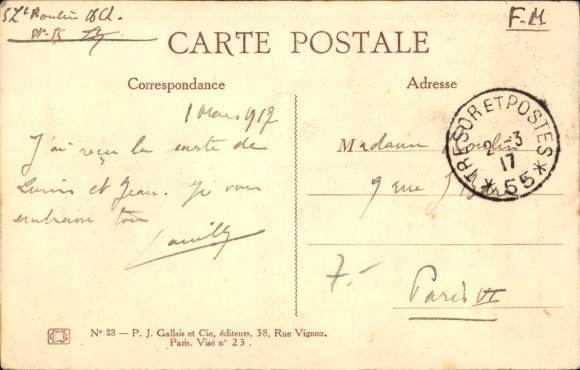 CARTE POSTALE
F.M
Correspondance
Adresse
1 Mars 1917
J'ai reçu la carte de
Louis et Jean. Je vous
embrasse tous
Camille
Madame Moulin
9 rue
Paris VI
7.-
TRESOR ET POSTES
2-3
17
* 55 *
Nº 23 — P. J. Gallais et Cie, éditeurs, 38, Rue Vignon.
Paris. Visé nº 23.